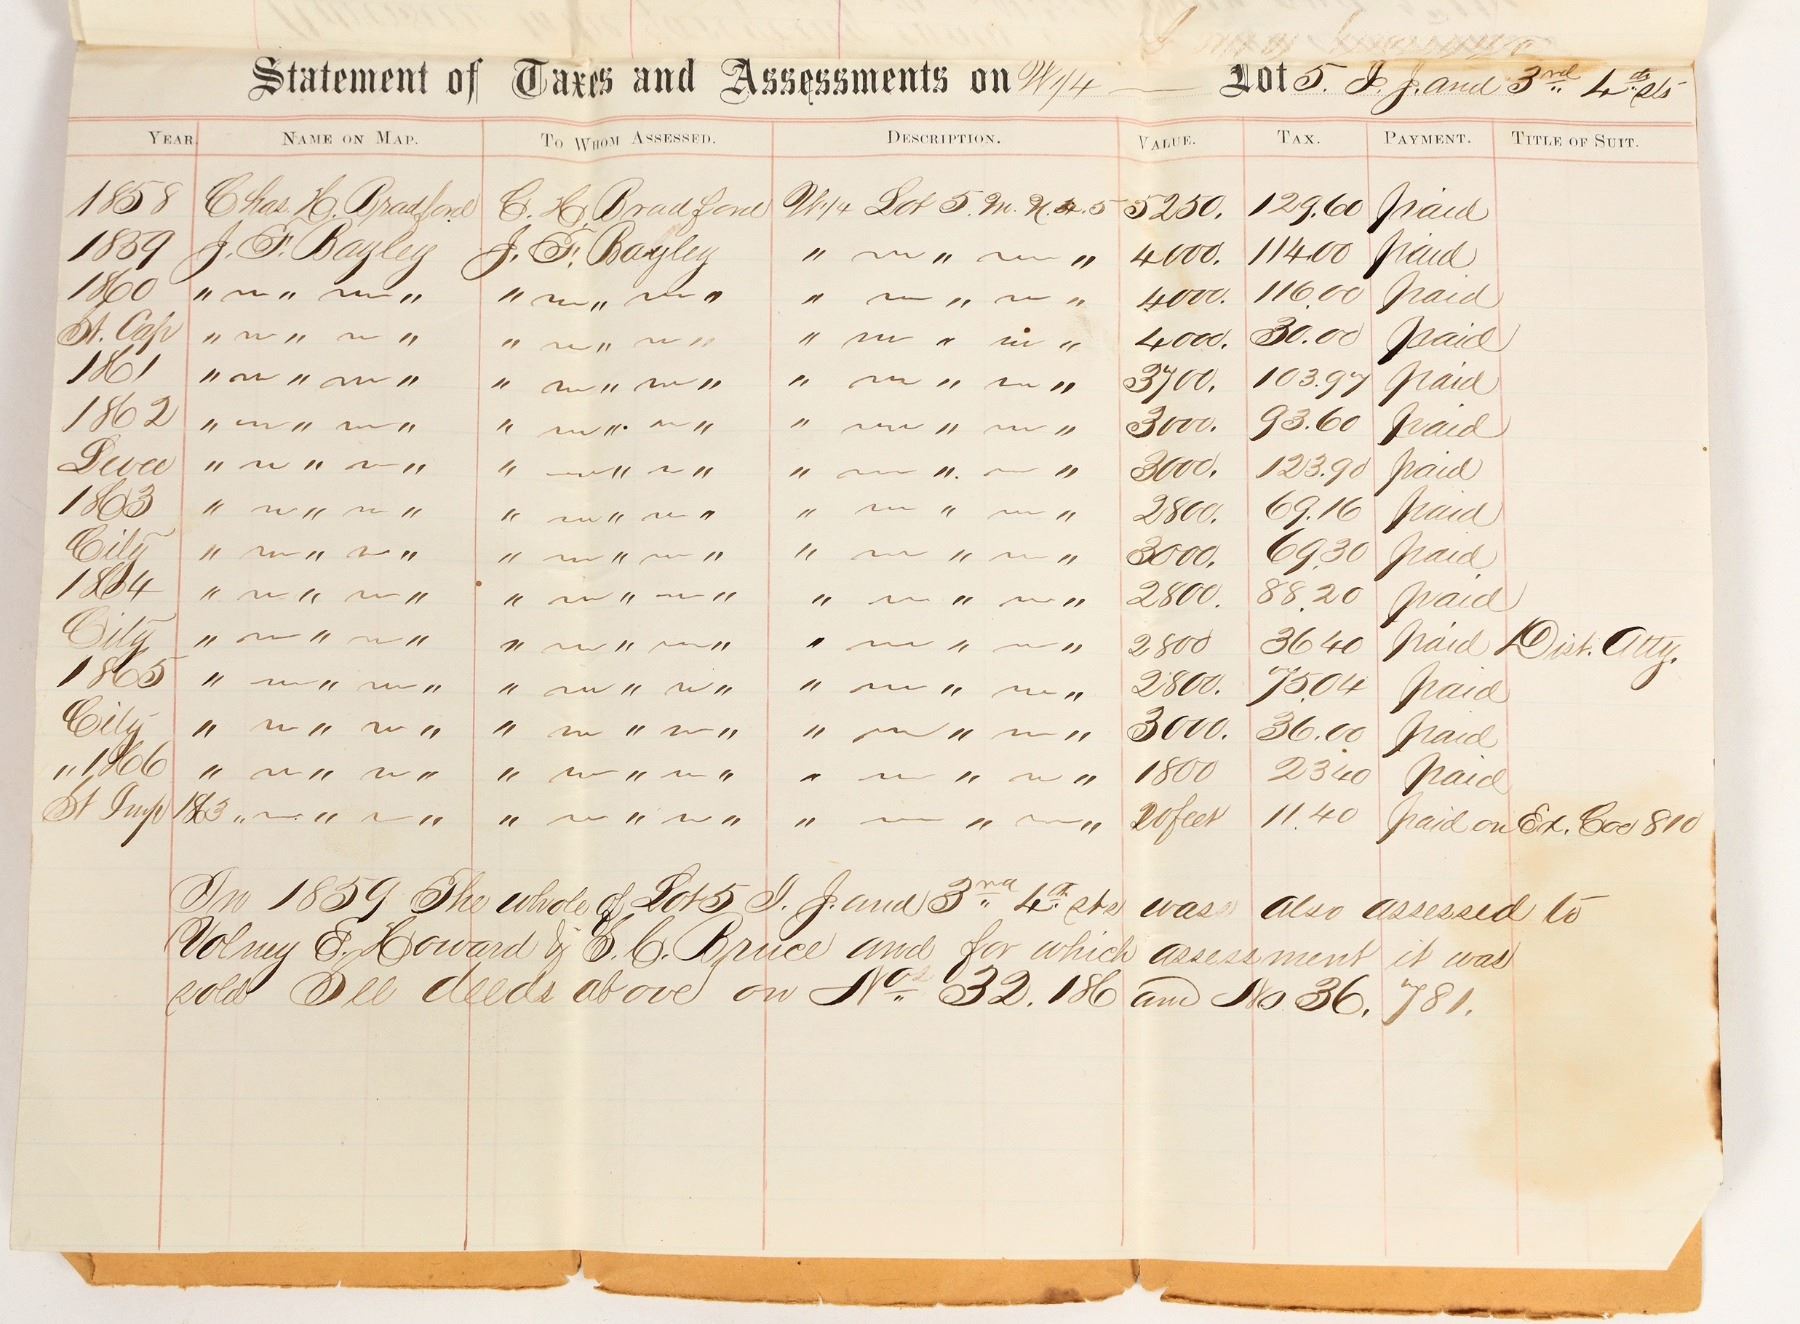 Statement of Taxes and Assessments on W 1/4 — Lot 5. I. J. and 3rd 4th sts
YEAR. NAME ON MAP. TO WHOM ASSESSED. DESCRIPTION. VALUE. TAX. PAYMENT. TITLE OF SUIT.
1858 Chas. H. Bradford C. H. Bradford W 1/4 Lot 5. 5250. 129.60 paid
1859 J. F. Bagley J. F. Bagley " " " 4000. 114.00 paid
1860 " " " " " " " " " 4000. 116.00 paid
St. Cap " " " " " " " " " 4000. 30.00 paid
1861 " " " " " " " " " 3700. 103.97 paid
1862 " " " " " " " " " 3000. 93.60 paid
Levee " " " " " " " " " 3000. 123.90 paid
1863 " " " " " " " " " 2800. 69.16 paid
City " " " " " " " " " 3000. 69.30 paid
1864 " " " " " " " " " 2800. 88.20 paid
City " " " " " " " " " 2800 36 40 paid Dist. Atty.
1865 " " " " " " " " " 2800. 75.04 paid
City " " " " " " " " " 3000. 36.00 paid
" 1866 " " " " " " " " " 1800 23 40 paid
St Imp 1863 " " " " " " " " " 20 feet 11.40 paid on Ex. Coe 810
In 1859 The whole of Lot 5 I. J. and 3rd 4th sts was also assessed to
Volney E. Howard & E. C. Bruce and for which assessment it was
sold See deeds above on Nos 32. 186 and No 36. 781.